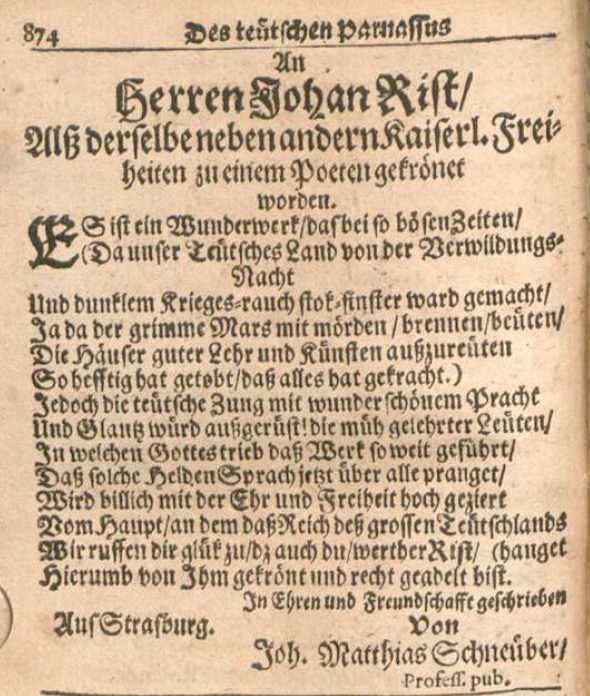 874 Des teütschen Parnassus
An
Herren Johan Rist/
Alß derselbe neben andern Kaiserl. Frei-
heiten zu einem Poeten gekrönet
worden.
ES ist ein Wunderwerk/das bei so bösen Zeiten/
(Da unser Teütsches Land von der Verwildungs-
Nacht
Und dunklem Krieges-rauch stok-finster ward gemacht/
Ja da der grimme Mars mit mörden/brennen/beüten/
Die Häuser guter Lehr und Künsten außzureüten
So hefftig hat getobt/daß alles hat gekracht.)
Jedoch die teütsche Zung mit wunder schönem Pracht
Und Glantz würd außgerüst! die müh gelehrter Leüten/
In welchen Gottes trieb daß Werk so weit geführt/
Daß solche Helden Sprach jetzt über alle pranget/
Wird billich mit der Ehr und Freiheit hoch geziert
Vom Haupt/an dem daß Reich deß grossen Teütschlands
Wir ruffen dir glük zu/dz auch du/werther Rist/ (hanget
Hierumb von Ihm gekrönt und recht geadelt bist.
In Ehren und Freundschafft geschrieben
Aus Strasburg. Von
Joh. Matthias Schneüber/
Profess. pub.